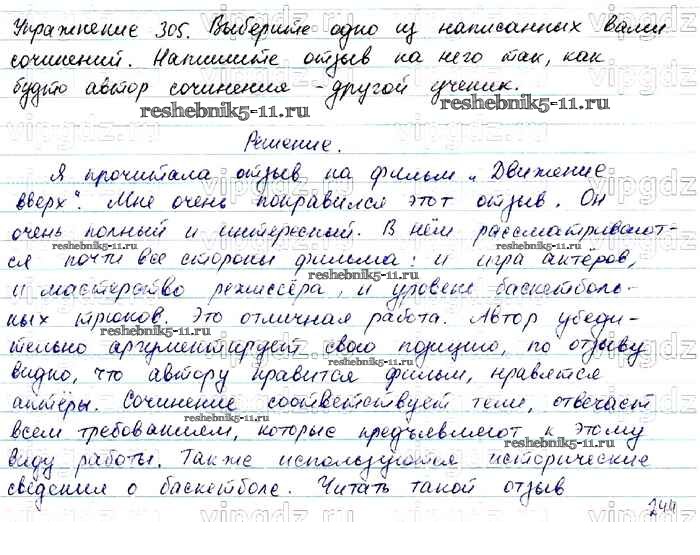 Упражнение 305. Выберите одно из написанных вами
сочинений. Напишите отзыв на него так, как
будто автор сочинения - другой ученик.
reshebnik5-11.ru
Решение.
Я прочитала отзыв на фильм „Движение
вверх". Мне очень понравился этот отзыв. Он
очень полный и интересный. В нём рассматривают-
reshebnik5-11.ru
ся почти все стороны фильма: и игра актёров,
reshebnik5-11.ru
и мастерство режиссёра, и уровень баскетболь-
ных трюков. Это отличная работа. Автор убеди-
reshebnik5-11.ru
тельно аргументирует свою позицию, по отзыву
видно, что автору нравится фильм, нравятся
актёры. Сочинение соответствует теме, отвечает
reshebnik5-11.ru
всем требованиям, которые предъявляют к этому
виду работы. Также используются исторические
сведения о баскетболе. Читать такой отзыв
reshebnik5-11.ru
244